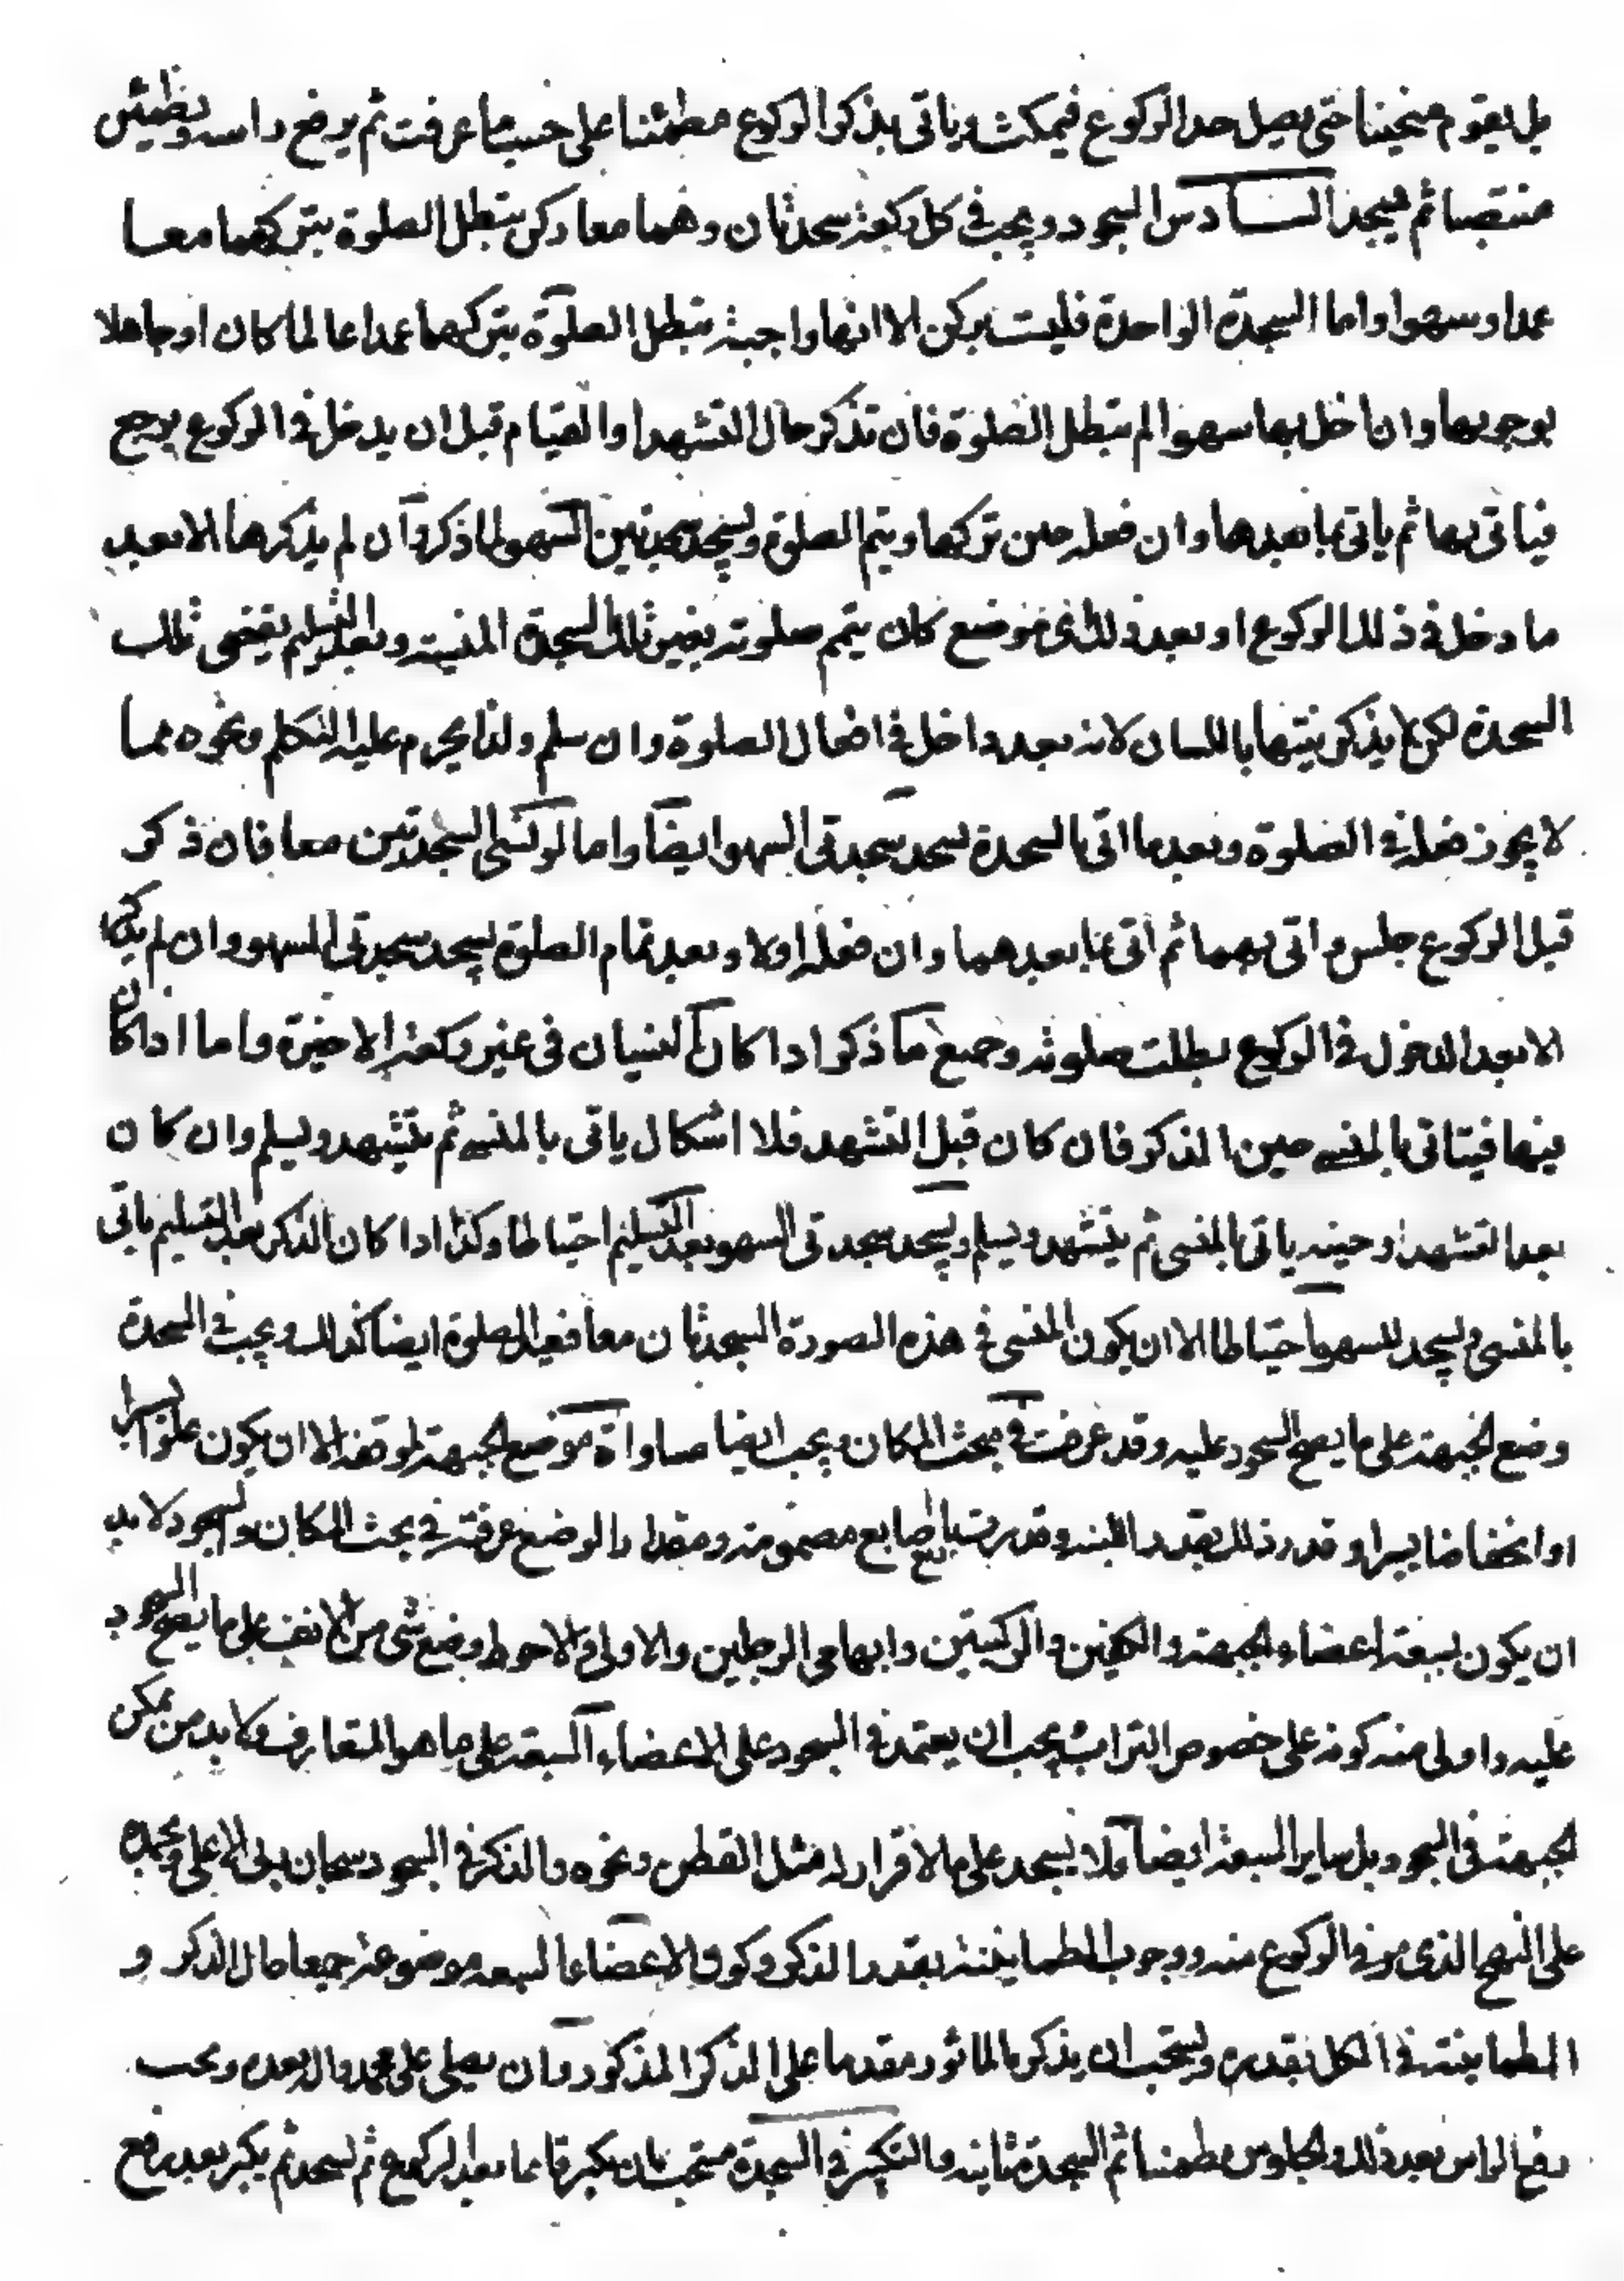 بل يقوم منحنيا حتى يصل حد الركوع فيمكث وياتى بذكر الركوع مطمئنا على حسب ما عرفت ثم يرفع راسه ويطمئن
منتصبا ثم يسجد السادس السجود ويجب فى كل ركعة سجدتان وهما معا ركن تبطل الصلوة بتركهما معا
عمدا وسهوا واما السجدة الواحدة فليست بركن الا انها واجبة تبطل الصلوة بتركها عمدا عالما كان او جاهلا
بوجوبها وان اخل بها سهوا لم تبطل الصلوة فان تذكر حال التشهد او القيام قبل ان يدخل فى الركوع يرجع
فياتى بها ثم ياتى بما بعدها وان فعله حين تركها ويتم الصلوة ويسجد سجدتين السهو لما ذكر وان لم يذكرها الا بعد
ما دخل فى ذلك الركوع او بعد ذلك اى موضع كان يتم صلوته بغير تلك السجدة المنسية وبعد التسليم يقضى تلك
السجدة لكن لا يذكر نيتها باللسان لانه بعد داخل فى افعال الصلوة وان سلم ولذا يحرم عليه التكلم ونحوه مما
لا يجوز فعله فى الصلوة وبعد ما اتى بالسجدة يسجد سجدتى السهو ايضا واما لو نسى السجدتين معا فان ذكر
قبل الركوع جلس واتى بهما ثم اتى بما بعدهما وان فعله اولا وبعد تمام الصلوة يسجد سجدتى السهو وان لم يذكرها
الا بعد الدخول فى الركوع بطلت صلوته وجميع ما ذكر اذا كان النسيان فى غير ركعة الاخيرة واما اذا كان
فيها فياتى بالمنسى حين المذكر فان كان قبل التشهد فلا اشكال ياتى بالمنسى ثم يتشهد ويسلم وان كان
بعد التشهد او حينه ياتى بالمنسى ثم يتشهد ويسلم ويسجد سجدتى السهو بعد التسليم احتياطا وكذا اذا كان الذكر بعد التسليم ياتى
بالمنسى ويسجد للسهو احتياطا الا ان يكون المنسى فى هذه الصورة السجدتان معا فيعيد الصلوة ايضا كذلك ويجب فى السجدة
وضع الجبهة على ما يصح السجود عليه وقد عرفت فى مبحث المكان ويجب ايضا مساواة موضع الجبهة لموقفه الا ان يكون علوا يسيرا
او انخفاضا يسيرا وقدر ذلك بقدر اللبنة وقدرت باربع اصابع مضمومة ومقدار الوضع عرفته فى بحث المكان والسجود لا بد
ان يكون بسبعة اعضاء الجبهة والكفين والركبتين وابهامى الرجلين والاولى والاحوط وضع شى من الانف على ما يصح السجود
عليه واولى منه كونه على خصوص التراب ويجب ان يعتمد فى السجود على الاعضاء السبعة على ما هو المتعارف ولا بد من تمكن
الجبهة فى السجود بل ساير السبعة ايضا فلا يسجد على ما لا قرار له مثل القطن ونحوه والذكر فى السجود سبحان ربى الاعلى وبحمده
على النهج الذى مر فى الركوع منه ووجوب الطمانينة بقدر الذكر وكون الاعضاء السبعة موضوعة جميعا حال الذكر و
الطمانينة فى الكل بقدره ويستحب ان يذكر بالماثور مقدما على الذكر المذكور وان يصلى على محمد وال بعده ويجب
رفع الراس بعد ذلك والجلوس مطمئنا ثم السجدة ثانية والتكبير فى السجدة مستحب بان يكبر قائما بعد الركوع ثم يسجد ثم يكبر بعد رفع